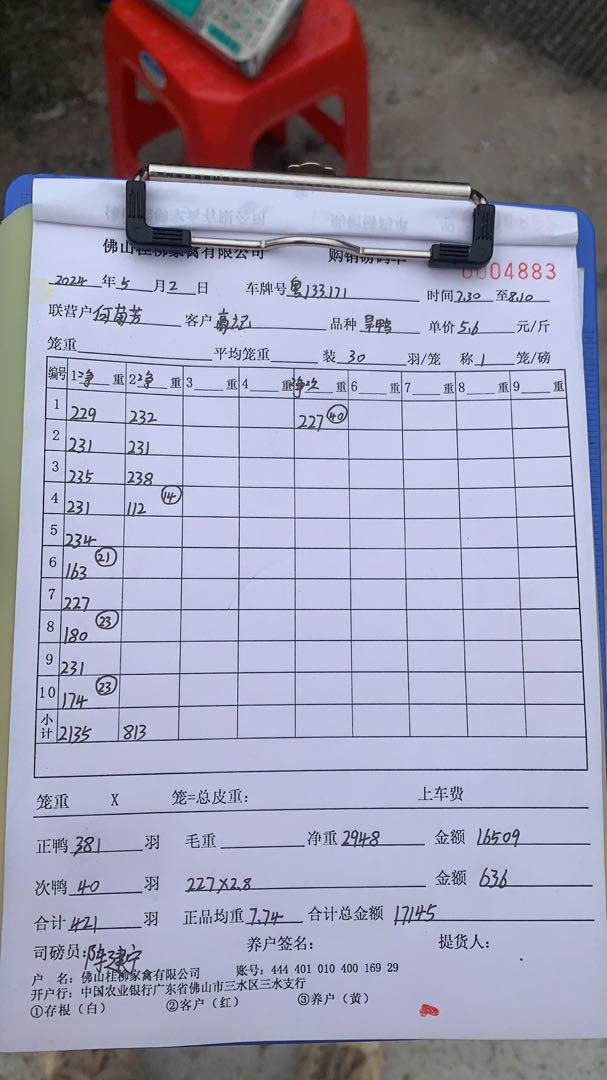 佛山桂柳家禽有限公司 购销磅码单
0004883
2024 年 5 月 2 日 车牌号 粤133.171 时间 7.30 至 8.10
联营户 何菊芳 客户 品种 旱鸭 单价 5.6 元/斤
笼重 平均笼重 装 30 羽/笼 称 1 笼/磅
编号 1净 重 2净 重 3 重 4 重 净次 重 6 重 7 重 8 重 9 重
1 229 232 227 40
2 231 231
3 235 238
4 231 112 14
5 234
6 163 21
7 227
8 180 23
9 231
10 174 23
小计 2135 813
笼重 X 笼=总皮重: 上车费
正鸭 381 羽 毛重 净重 2948 金额 16509
次鸭 40 羽 227×2.8 金额 636
合计 421 羽 正品均重 7.74 合计总金额 17145
司磅员: 陈建宁 养户签名: 提货人:
户 名: 佛山桂柳家禽有限公司 账号: 444 401 010 400 169 29
开户行: 中国农业银行广东省佛山市三水区三水支行
①存根(白) ②客户(红) ③养户(黄)